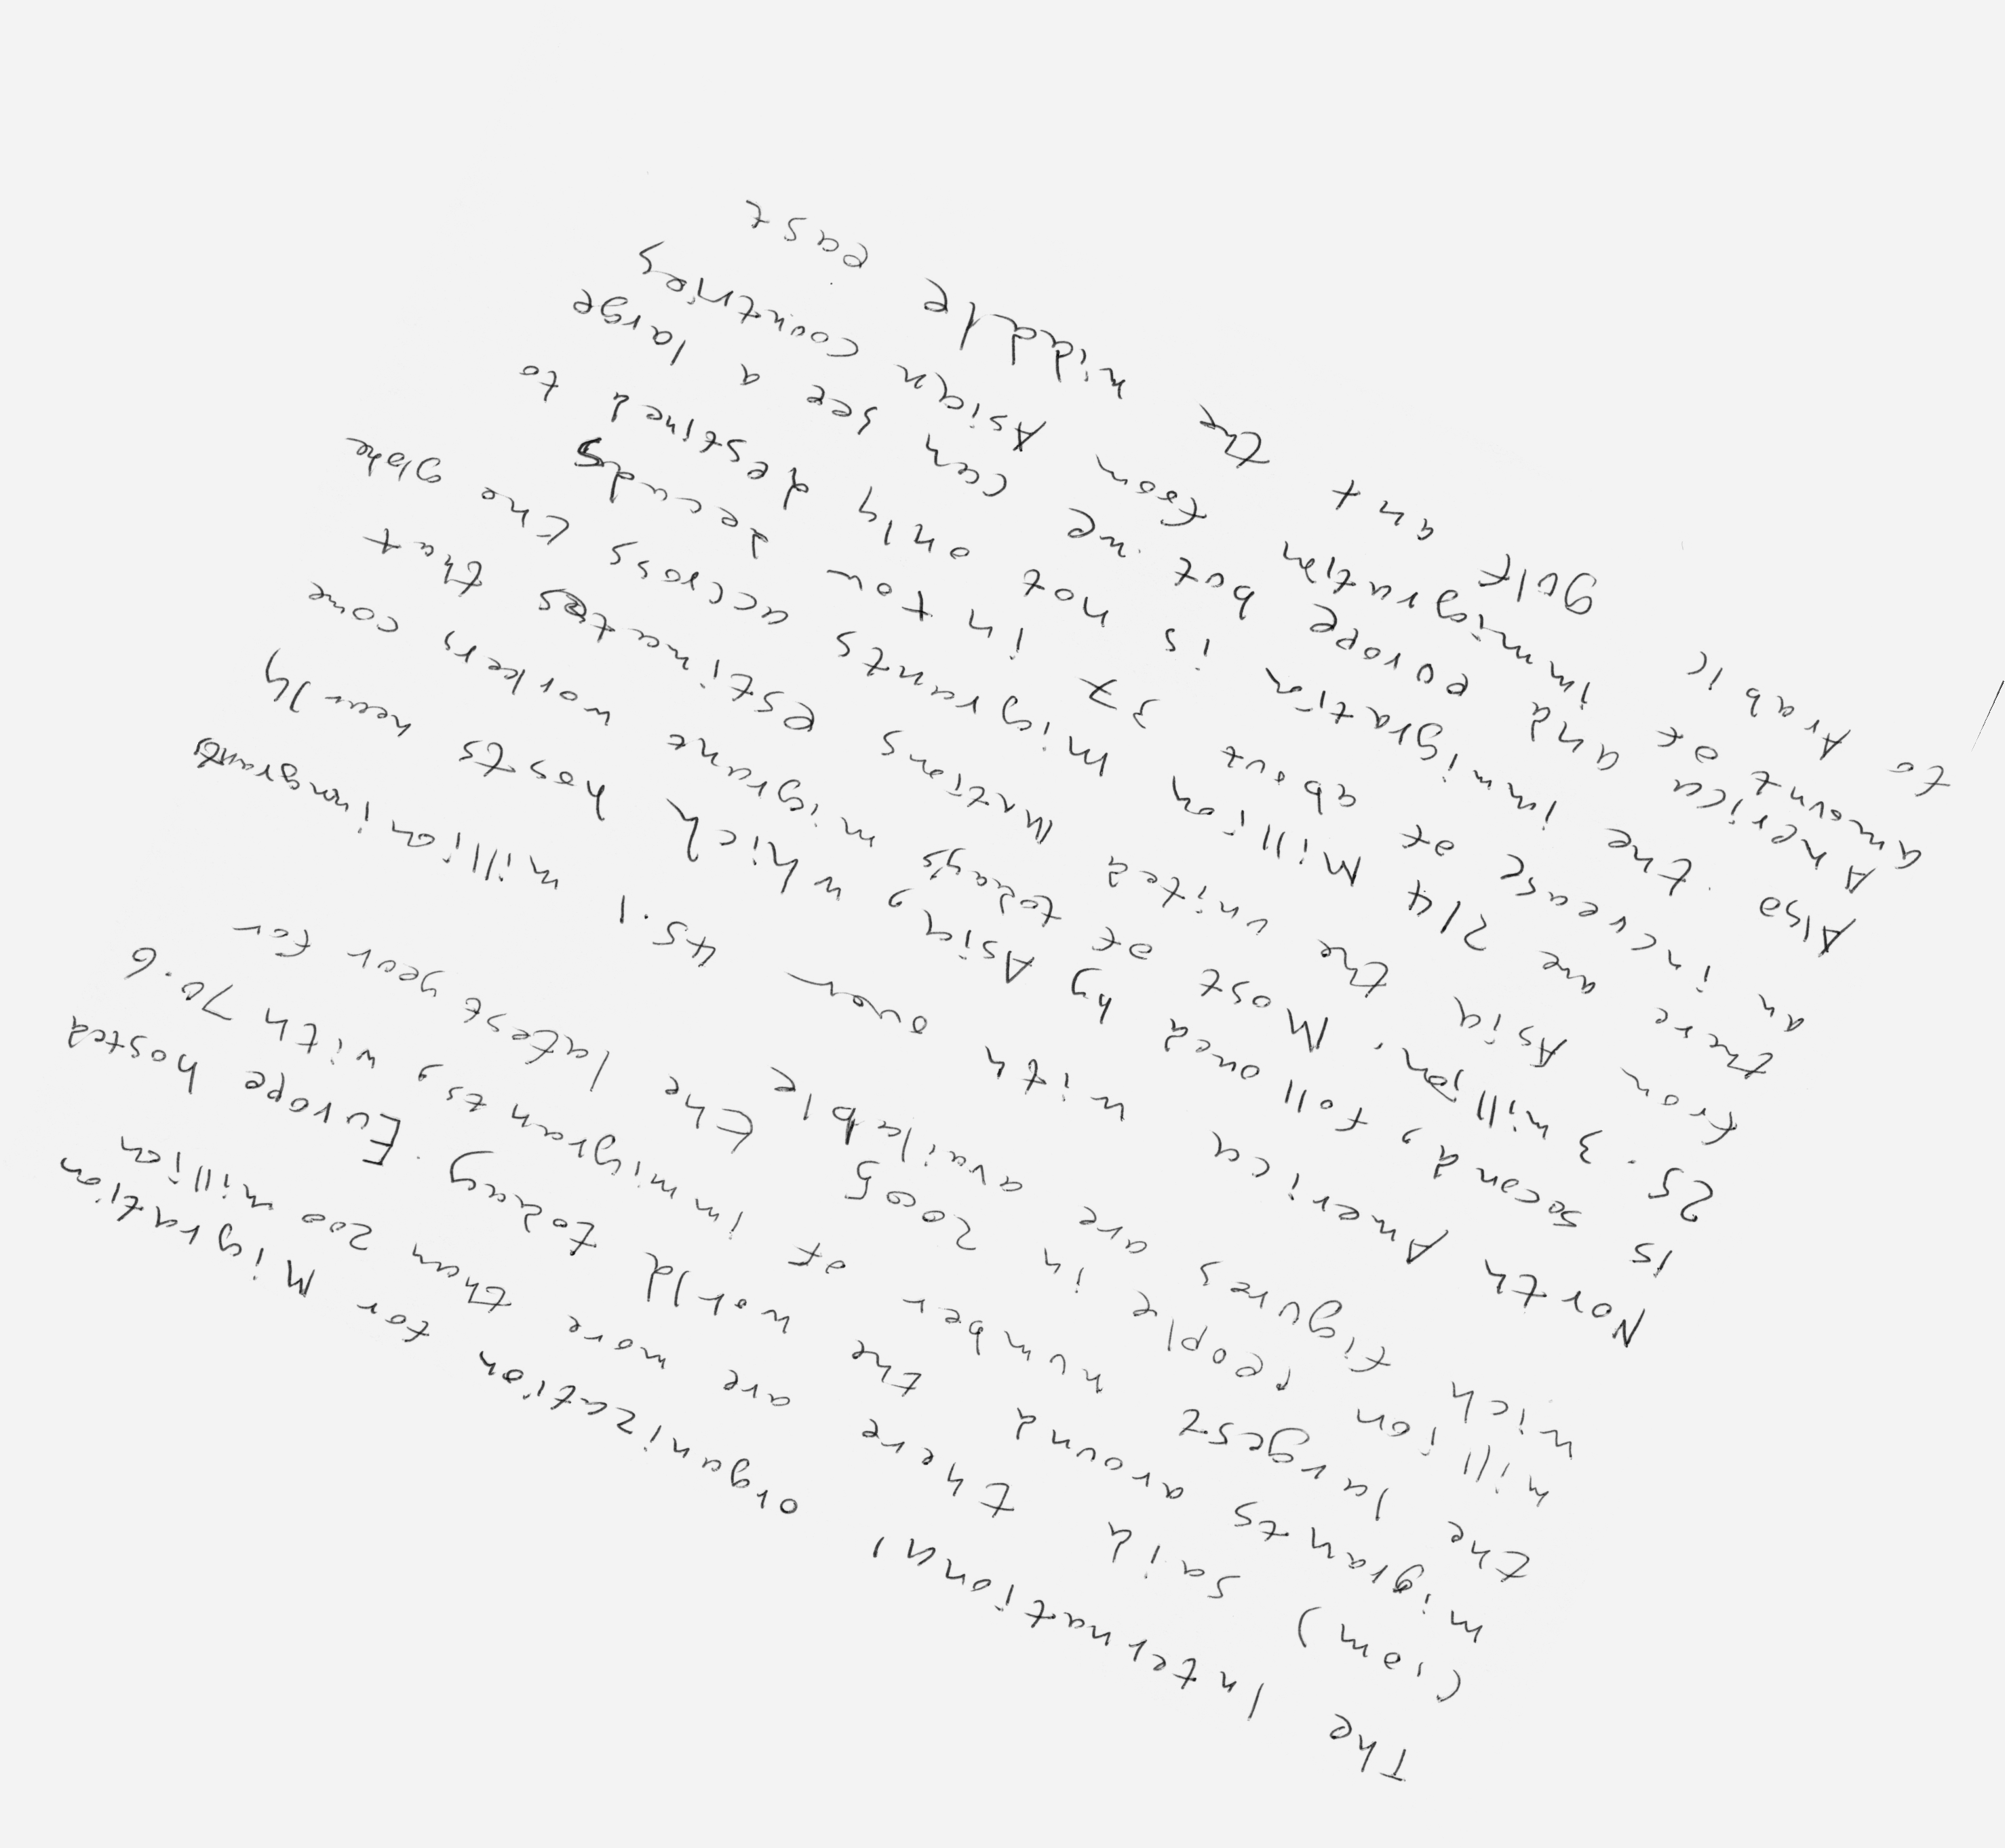 The International organization for Migration
(iom) said there are more than 200 million
migrants around the world today. Europe hosted
the largest number of immigrants, with 70.6
million people in 2005 the latest year for
wich figures are available
North America with over 45.1 million immigrants
is second, followed by Asia, which hosts nearly
25.3 million. Most of todays migrane workers come
from Asia the united nations estimates that
there are 214 Million Migrants accross the globe
an increase of about 37 in tow decads
Also the immigration is not only destined to
America and europe but we can see a large
amount of immigration from Asian countries
to Arabic gulf ant the middle east